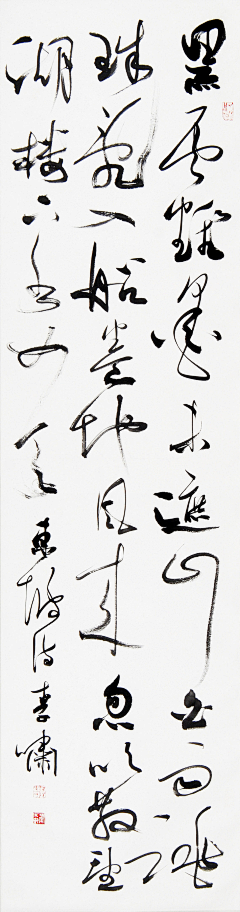 黑云翻墨未遮山白雨跳
珠亂入船卷地風来忽吹散望
湖樓下水如天 東坡诗李嘯